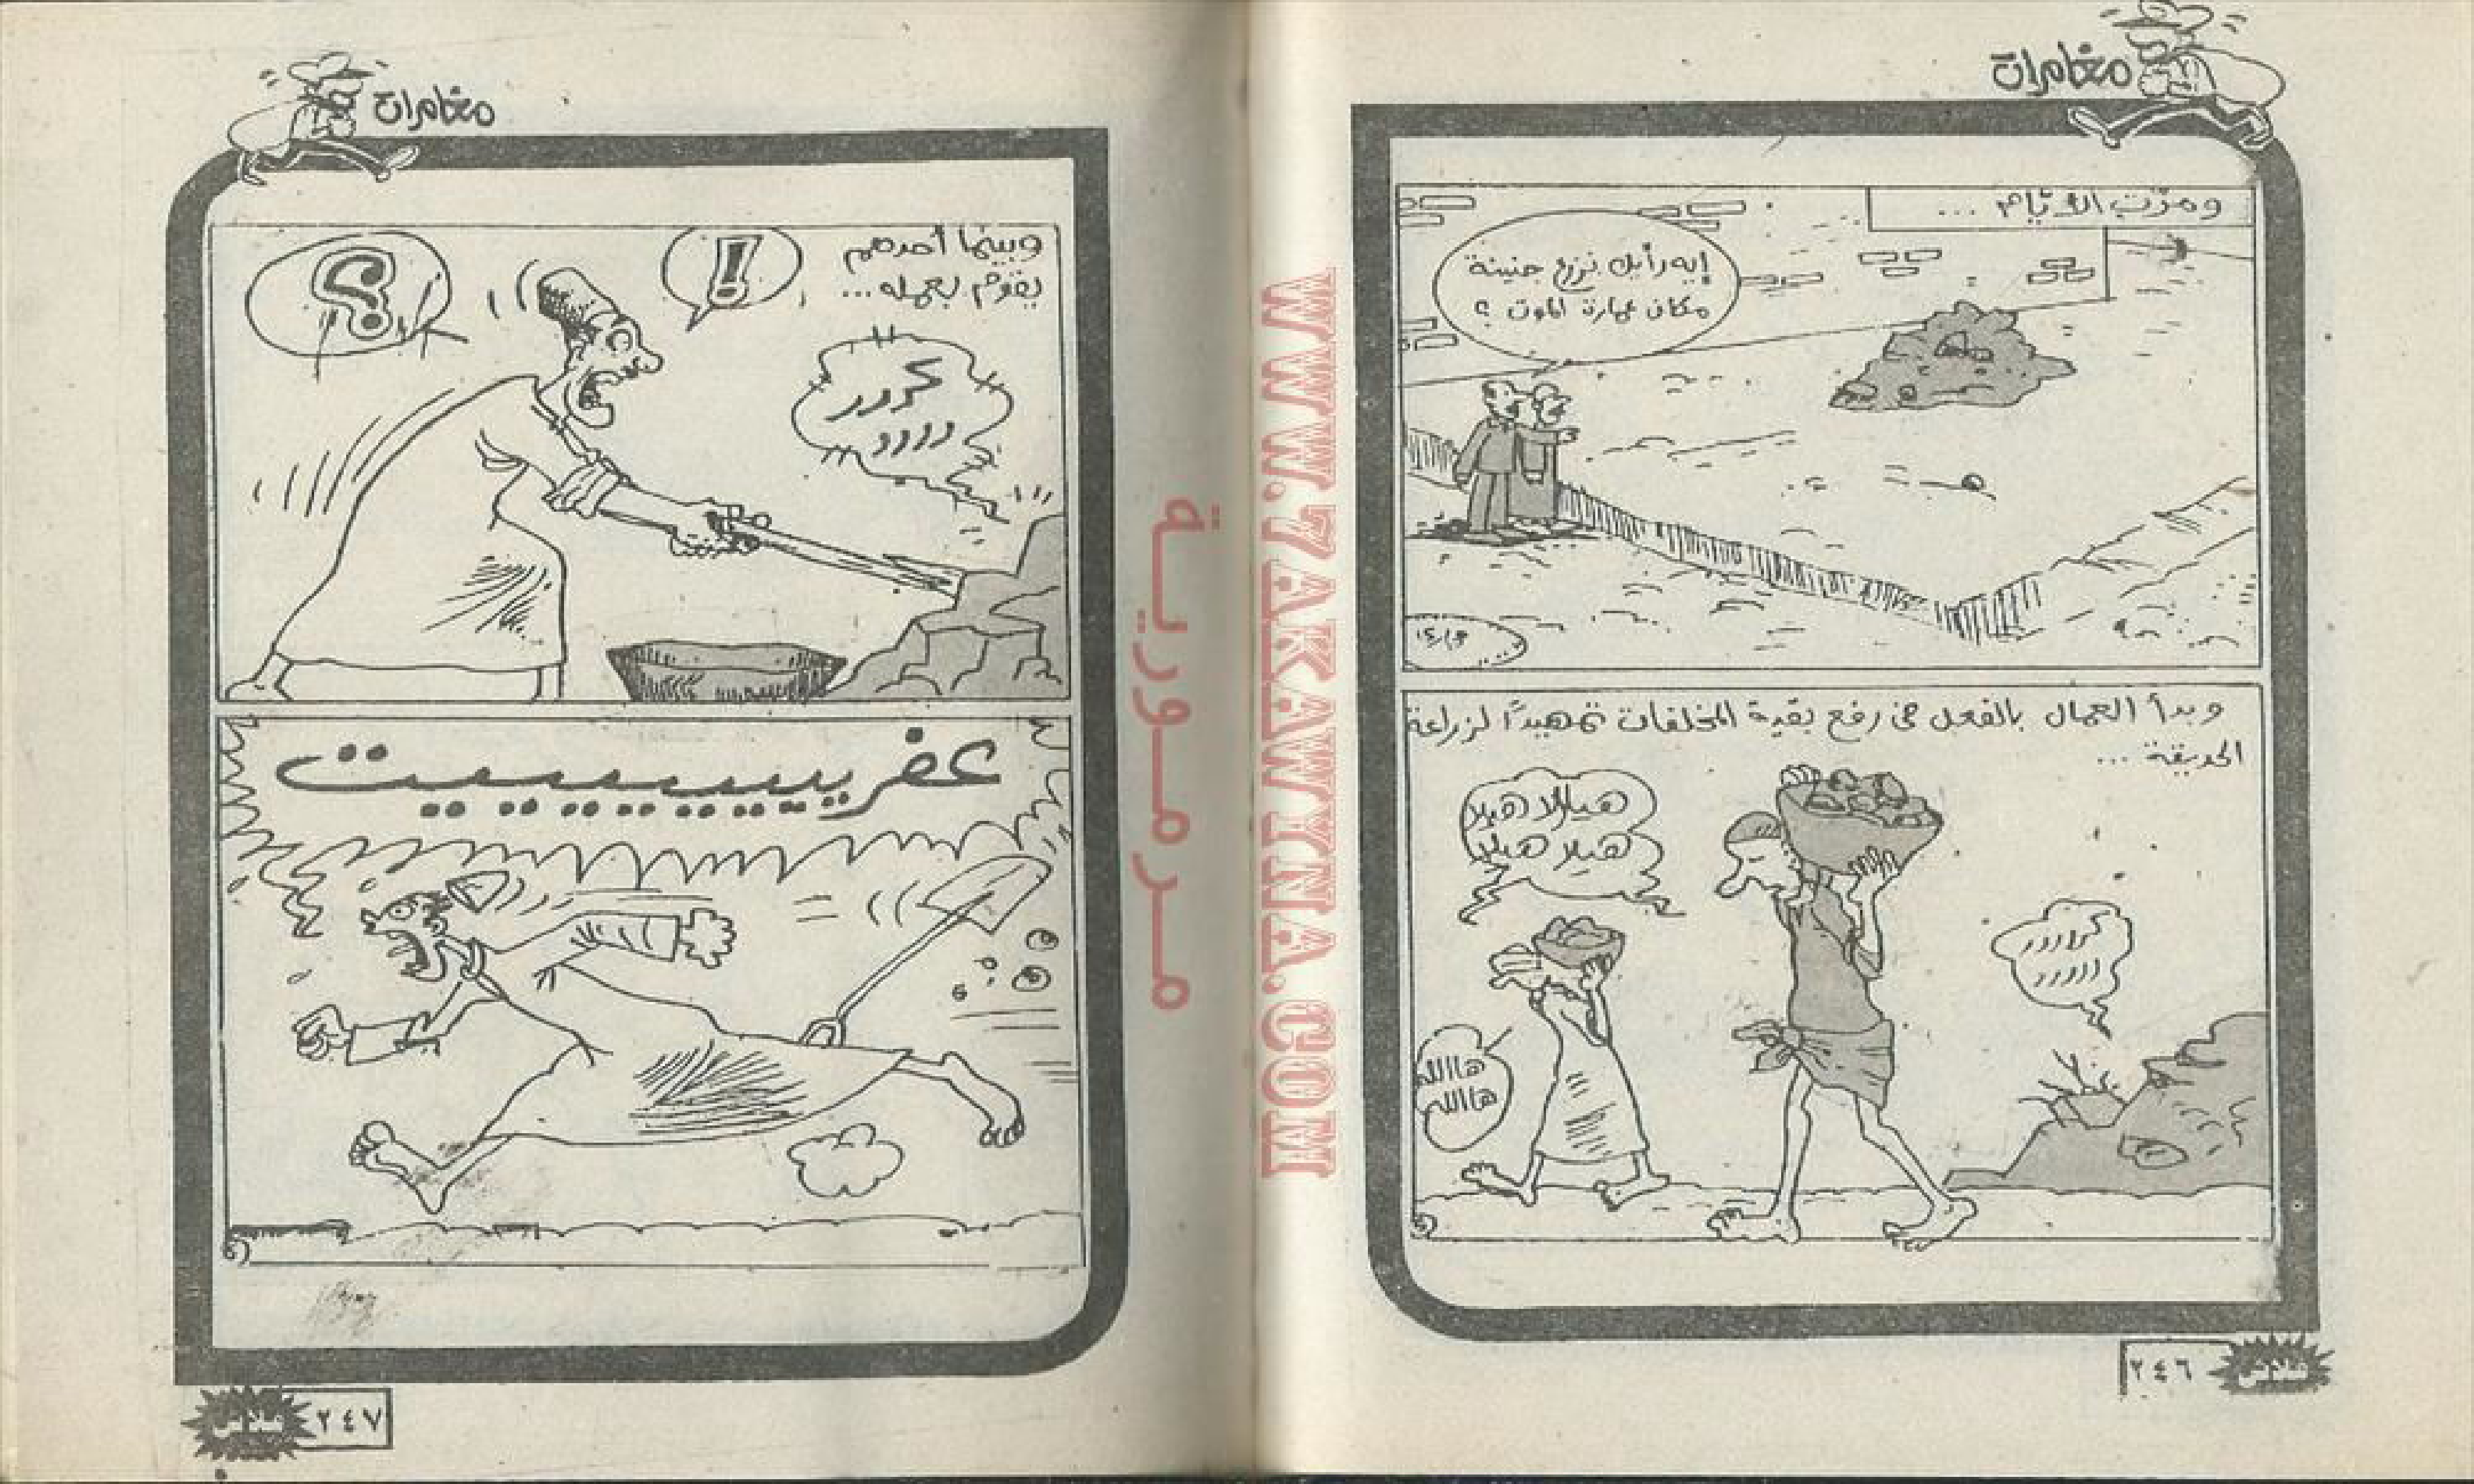 مغامرات
ومرّت الأيّام ...
إيه رأيك نزرع جنينة
مكان عمارة الموت ؟
وبدأ العمال بالفعل فى رفع بقية المخلفات تمهيداً لزراعة
الحديقة ...
هيلا هيلا
هيلا هيلا
هاالله
هاالله
كرررر
رررر
٢٤٦
فلاش
WWW.7AKAWINNA.COM
مرمورية
مغامرات
وبينما أحدهم
يقوم بعمله ...
!
؟
كررر
رررر
عفرييييييييت
٢٤٧
فلاش